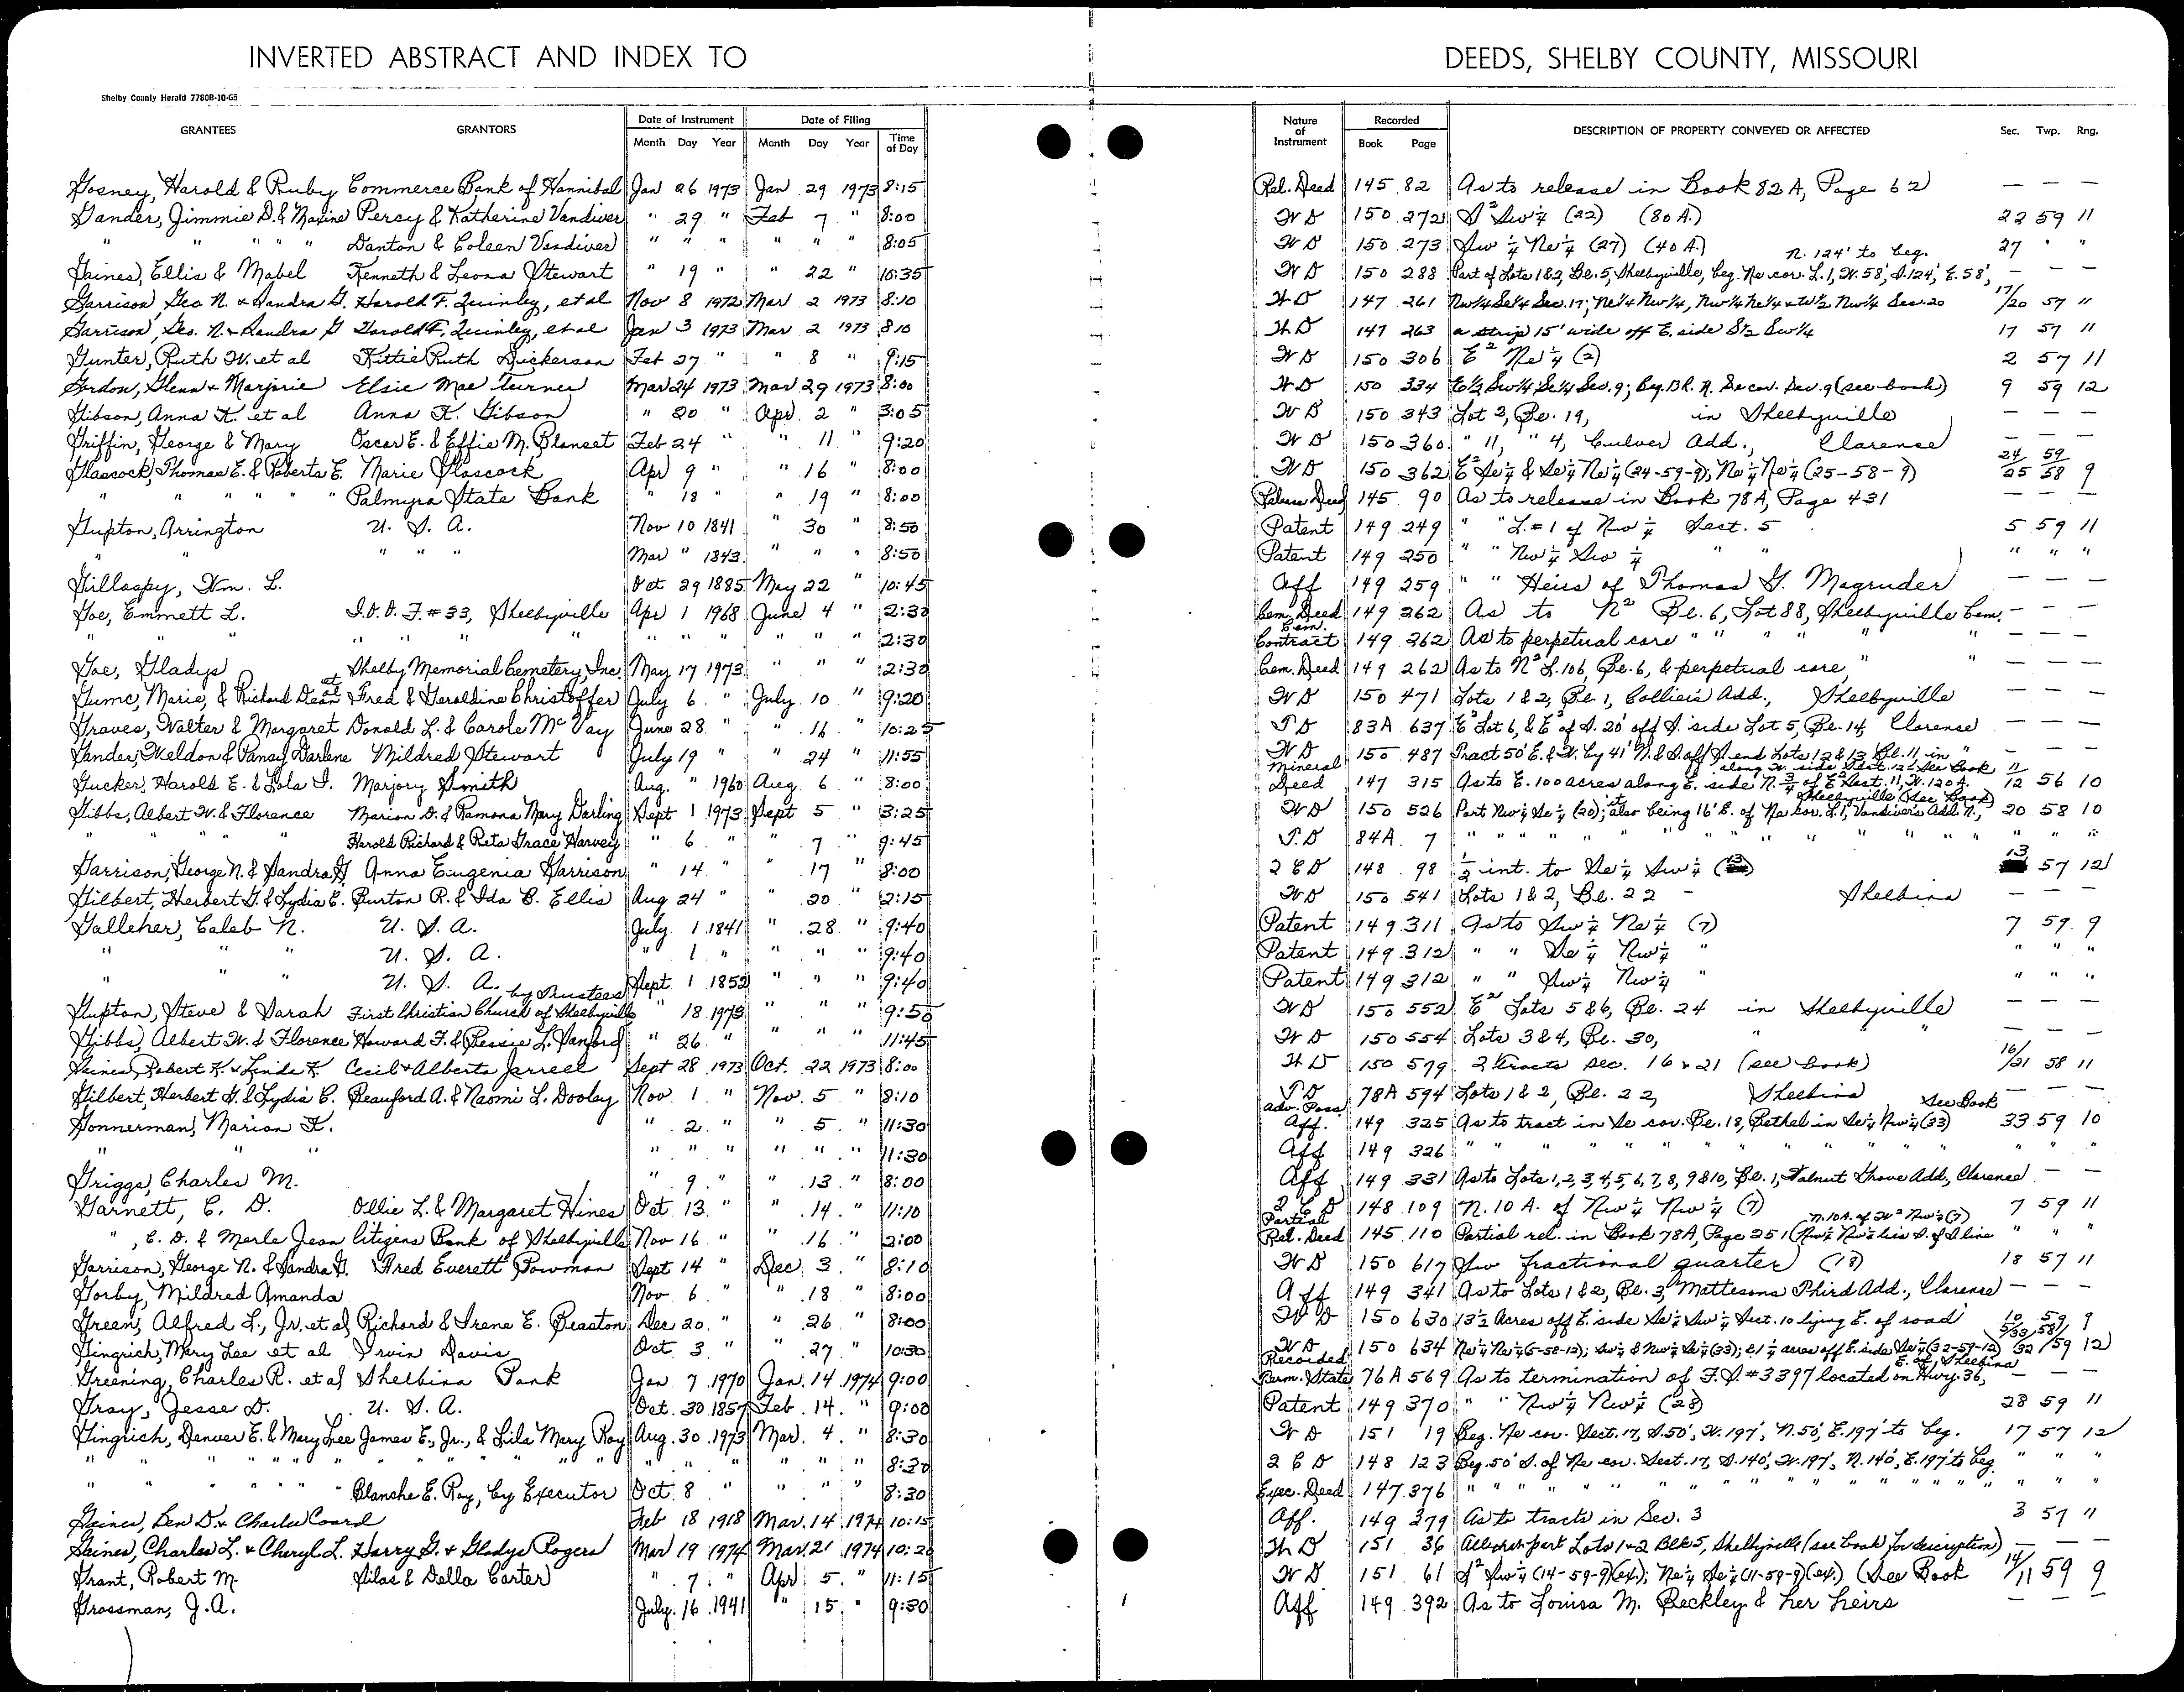 INVERTED ABSTRACT AND INDEX TO DEEDS, SHELBY COUNTY, MISSOURI
Shelby County Herald 7780B-10-65
GRANTEES GRANTORS Date of Instrument Date of Filing Nature of Instrument Recorded DESCRIPTION OF PROPERTY CONVEYED OR AFFECTED Sec. Twp. Rng.
Month Day Year Month Day Year Time of Day Book Page
Gosney, Harold & Ruby Commerce Bank of Hannibal Jan 26 1973 Jan 29 1973 8:15 Rel. Deed 145 82 As to release in Book 82A, Page 62 — — —
Gander, Jimmie D. & Maxine Percy & Katherine Vandiver " 29 " Feb 7 " 8:00 WD 150 272 S² Sw¼ (22) (80 A.) 22 59 11
" " " " " Danton & Coleen Vandiver " " " " " " 8:05 WD 150 273 Sw ¼ Ne ¼ (27) (40 A.) 27 " "
Gaines, Ellis & Mabel Kenneth & Leona Stewart " 19 " " 22 " 10:35 WD 150 288 Part of Lots 1&2, Bl. 5, Shelbyville, beg. Ne cor. L. 1, W. 58', S. 124', E. 58', N. 124' to beg. — — —
Garrison, Geo. N. & Sandra G. Harold F. Quinley, et al Nov 8 1972 Mar 2 1973 8:10 WD 147 261 Nw¼ Se¼ Sec. 17; Ne¼ Nw¼, Nw¼ Ne¼ & W½ Nw¼ Sec. 20 17/20 57 11
Garrison, Geo. N. & Sandra G Harold F. Quinley, et al Jan 3 1973 Mar 2 1973 8 10 WD 147 263 a strip 15' wide off E. side S½ Sw¼ 17 57 11
Gunter, Ruth W. et al Kittie Ruth Dickerson Feb 27 " " 8 " 9:15 WD 150 306 E² Ne ¼ (2) 2 57 11
Gordon, Glenn & Marjorie Elsie Mae Turner Mar 24 1973 Mar 29 1973 8:00 WD 150 334 E½ Sw¼ Se¼ Sec. 9; Beg. 13 R. N. Se cor. Sec. 9 (see book) 9 59 12
Gibson, Anna K. et al Anna K. Gibson " 20 " Apr 2 " 3:05 WD 150 343 Lot 3, Bl. 19, in Shelbyville — — —
Griffin, George & Mary Oscar E. & Effie M. Blanset Feb 24 " " 11 " 9:20 WD 150 360 " 11, " 4, Culver Add., Clarence — — —
Glascock, Thomas E. & Roberta E. Marie Glascock Apr 9 " " 16 " 8:00 WD 150 362 E² Se¼ & Se¼ Ne¼ (24-59-9); Ne¼ Ne¼ (25-58-9) 24/25 59/58 9
" " " " " " Palmyra State Bank " 18 " " 19 " 8:00 Release Deed 145 90 As to release in Book 78A, Page 431 — — —
Gupton, Arrington U. S. A. Nov 10 1841 " 30 " 8:50 Patent 149 249 " " L. #1 of Nw ¼ Sect. 5 5 59 11
" " " " " Mar " 1843 " " " 8:50 Patent 149 250 " " Nw ¼ Sw ¼ " " " " "
Gillaspy, Wm. L. Oct 29 1885 May 22 " 10:45 Aff 149 259 " " Heirs of Thomas G. Magruder — — —
Goe, Emmett L. I.O.O.F. #33, Shelbyville Apr 1 1968 June 4 " 2:30 Cem. Deed 149 262 As to N² Bl. 6, Lot 88, Shelbyville Cem. — — —
" " " " " " " " " " " " " 2:30 Cem. Contract 149 262 As to perpetual care " " " " " " — — —
Goe, Gladys Shelby Memorial Cemetery, Inc. May 17 1973 " " " 2:30 Cem. Deed 149 262 As to N² L. 106, Bl. 6, & perpetual care, " " — — —
Gume, Marie, & Richard Dean et al Fred & Geraldine Christoffer July 6 " July 10 " 9:20 WD 150 471 Lots 1&2, Bl. 1, Collier's Add., Shelbyville — — —
Graves, Walter & Margaret Donald L. & Carole McVay June 28 " " 16 " 10:25 TD 83A 637 E² Lot 6, & E² of S. 20' off S. side Lot 5, Bl. 14, Clarence — — —
Gander, Weldon & Pansy Darlene Mildred Stewart July 19 " " 24 " 11:55 WD 150 487 Tract 50' E. & W. by 41' N. & S. off S. end Lots 12 & 13, Bl. 11 in " — — —
Gucker, Harold E. & Lola I. Marjory Smith Aug. " 1960 Aug. 6 " 8:00 Mineral Deed 147 315 As to E. 100 acres along E. side N. ¾ of E² Sect. 11, W. 120 A. along W. side Sect. 12 - See Book 11/12 56 10
Gibbs, Albert W. & Florence Marion D. & Ramona Mary Darling Sept 1 1973 Sept 5 " 3:25 WD 150 526 Part Nw¼ Se¼ (20); also being 16' E. of Ne cor. L. 1, Vandiver's Add. N., Shelbyville (See Book) 20 58 10
" " " " Harold Richard & Reta Grace Harvey " 6 " " 7 " 9:45 T.D 84A 7 " " " " " " " " " " " "
Garrison, George N. & Sandra G Anna Eugenia Garrison " 14 " " 17 " 8:00 2 C D 148 98 ½ int. to Se ¼ Sw ¼ (13) 13 57 12
Gilbert, Herbert G. & Lydia C. Burton R. & Ida B. Ellis Aug 24 " " 20 " 2:15 WD 150 541 Lots 1&2, Bl. 22 - Shelbina
Galleher, Caleb N. U. S. A. July 1 1841 " 28 " 9:40 Patent 149 311 As to Sw ¼ Ne ¼ (7) 7 59 9
" " " U. S. A. " 1 " " " " 9:40 Patent 149 312 " " Se ¼ Nw ¼ " " " "
" " " U. S. A. Sept. 1 1852 " " " 9:40 Patent 149 312 " " Sw ¼ Nw ¼ " " " "
Gupton, Steve & Sarah First Christian Church of Shelbyville by Trustees " 18 1973 " " " 9:50 WD 150 552 E² Lots 5&6, Bl. 24 in Shelbyville — — —
Gibbs, Albert W. & Florence Howard F. & Bessie L. Sanford " 26 " " " " 11:45 WD 150 554 Lots 3&4, Bl. 30, " " — — —
Gaines, Robert K. & Linda K. Cecil & Alberta Jarrell Sept 28 1973 Oct. 22 1973 8:00 WD 150 579 2 tracts sec. 16 & 21 (see book) 16/21 58 11
Gilbert, Herbert G. & Lydia C. Beauford A. & Naomi L. Dooley Nov. 1 " Nov. 5 " 8:10 TD 78A 594 Lots 1 & 2, Bl. 22, Shelbina — — —
Gonnerman, Marion K. " 2 " " 5 " 11:30 Adv. Poss. Aff. 149 325 As to tract in Se cor. Bl. 18, Bethel in Se¼ Nw¼ (33) See Book 33 59 10
" " " " " " " " " 11:30 Aff 149 326 " " " " " " " " " " "
Griggs, Charles M. " 9 " " 13 " 8:00 Aff 149 331 As to Lots 1, 2, 3, 4, 5, 6, 7, 8, 9 & 10, Bl. 1, Walnut Grove Add., Clarence — —
Garnett, E. D. Ollie L. & Margaret Hines Oct. 13 " " 14 " 11:10 2 C D 148 109 N. 10 A. of Nw ¼ Nw ¼ (7) 7 59 11
" , E. D. & Merla Jean Citizens Bank of Shelbyville Nov. 16 " " 16 " 2:00 Partial Rel. Deed 145 110 Partial rel. in Book 78A, Page 251 (Nw¼ Nw¼ lies S. of S line N. 10 A. of W² Nw¼ (7) " " "
Garrison, George N. & Sandra G. Fred Everett Bowman Sept 14 " Dec 3 " 8:10 WD 150 617 Sw fractional quarter (18) 18 57 11
Gorby, Mildred Amanda Nov 6 " " 18 " 8:00 Aff 149 341 As to Lots 1 & 2, Bl. 3, Mattesons Third Add., Clarence — — —
Green, Alfred L., Jr. et al Richard & Irene E. Beaston Dec 20 " " 26 " 8:00 WD 150 630 13½ Acres off E. side Se¼ Sw¼ Sect. 10 lying E. of road 10 59 9
Gingrich, Mary Lee et al Irvin Davis Oct. 3 " " 27 " 10:30 WD 150 634 Ne¼ Ne¼ (5-58-12); Sw¼ & Nw¼ Se¼ (33); 21¼ acres off E. side Se¼ (32-59-12) 5/33/32 58/59 12
Greening, Charles R. et al Shelbina Bank Jan. 7 1970 Jan. 14 1974 9:00 Recorded Term. State 76A 569 As to termination of F.S. #3397 located on Hwy. 36, E. of Shelbina — — —
Gray, Jesse D. U. S. A. Oct. 30 1857 Feb 14 " 9:00 Patent 149 370 " " Nw¼ Nw¼ (28) 28 59 11
Gingrich, Denver E. & Mary Lee James E., Jr., & Lila Mary Roy Aug. 30 1973 Mar. 4 " 8:30 WD 151 19 Beg. Ne cor. Sect. 17, S. 50', W. 197', N. 50', E. 197' to beg. 17 57 12
" " " " " " " " " " " " " " " 8:30 2 C D 148 123 Beg. 50' S. of Ne cor. Sect. 17, S. 140', W. 197', N. 140', E. 197' to beg. " " "
" " " " " " Blanche E. Roy, by Executor Oct. 8 " " " " 8:30 Exec. Deed 147 376 " " " " " " " " " " " " " "
Gaines, Ben D. & Charles Coard Feb 18 1918 Mar. 14 1974 10:15 Aff. 149 379 As to tracts in Sec. 3 3 57 11
Gaines, Charles L. & Cheryl L. Harry G. & Gladys Rogers Mar 19 1974 Mar. 21 1974 10:20 WD 151 36 part Lots 1 & 2 Blk 5, Shelbyville (see book for description) — —
Grant, Robert M. Silas & Della Carter " 7 " Apr 5 " 11:15 WD 151 61 S² Sw¼ (14-59-9) (ex.); Ne¼ Se¼ (11-59-9) (ex.) (See Book 14/11 59 9
Grossman, J. A. July 16 1941 " 15 " 9:30 Aff 149 392 As to Louisa M. Beckley & her heirs — — —